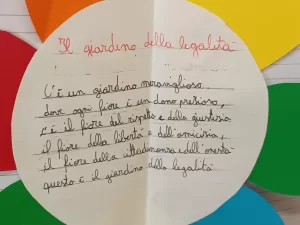 Il giardino della legalità
C'è un giardino meraviglioso,
dove ogni fiore è un dono prezioso,
c'è il fiore del rispetto e della giustizia
il fiore della libertà e dell'amicizia,
il fiore della cittadinanza e dell'onestà
questo è il giardino della legalità